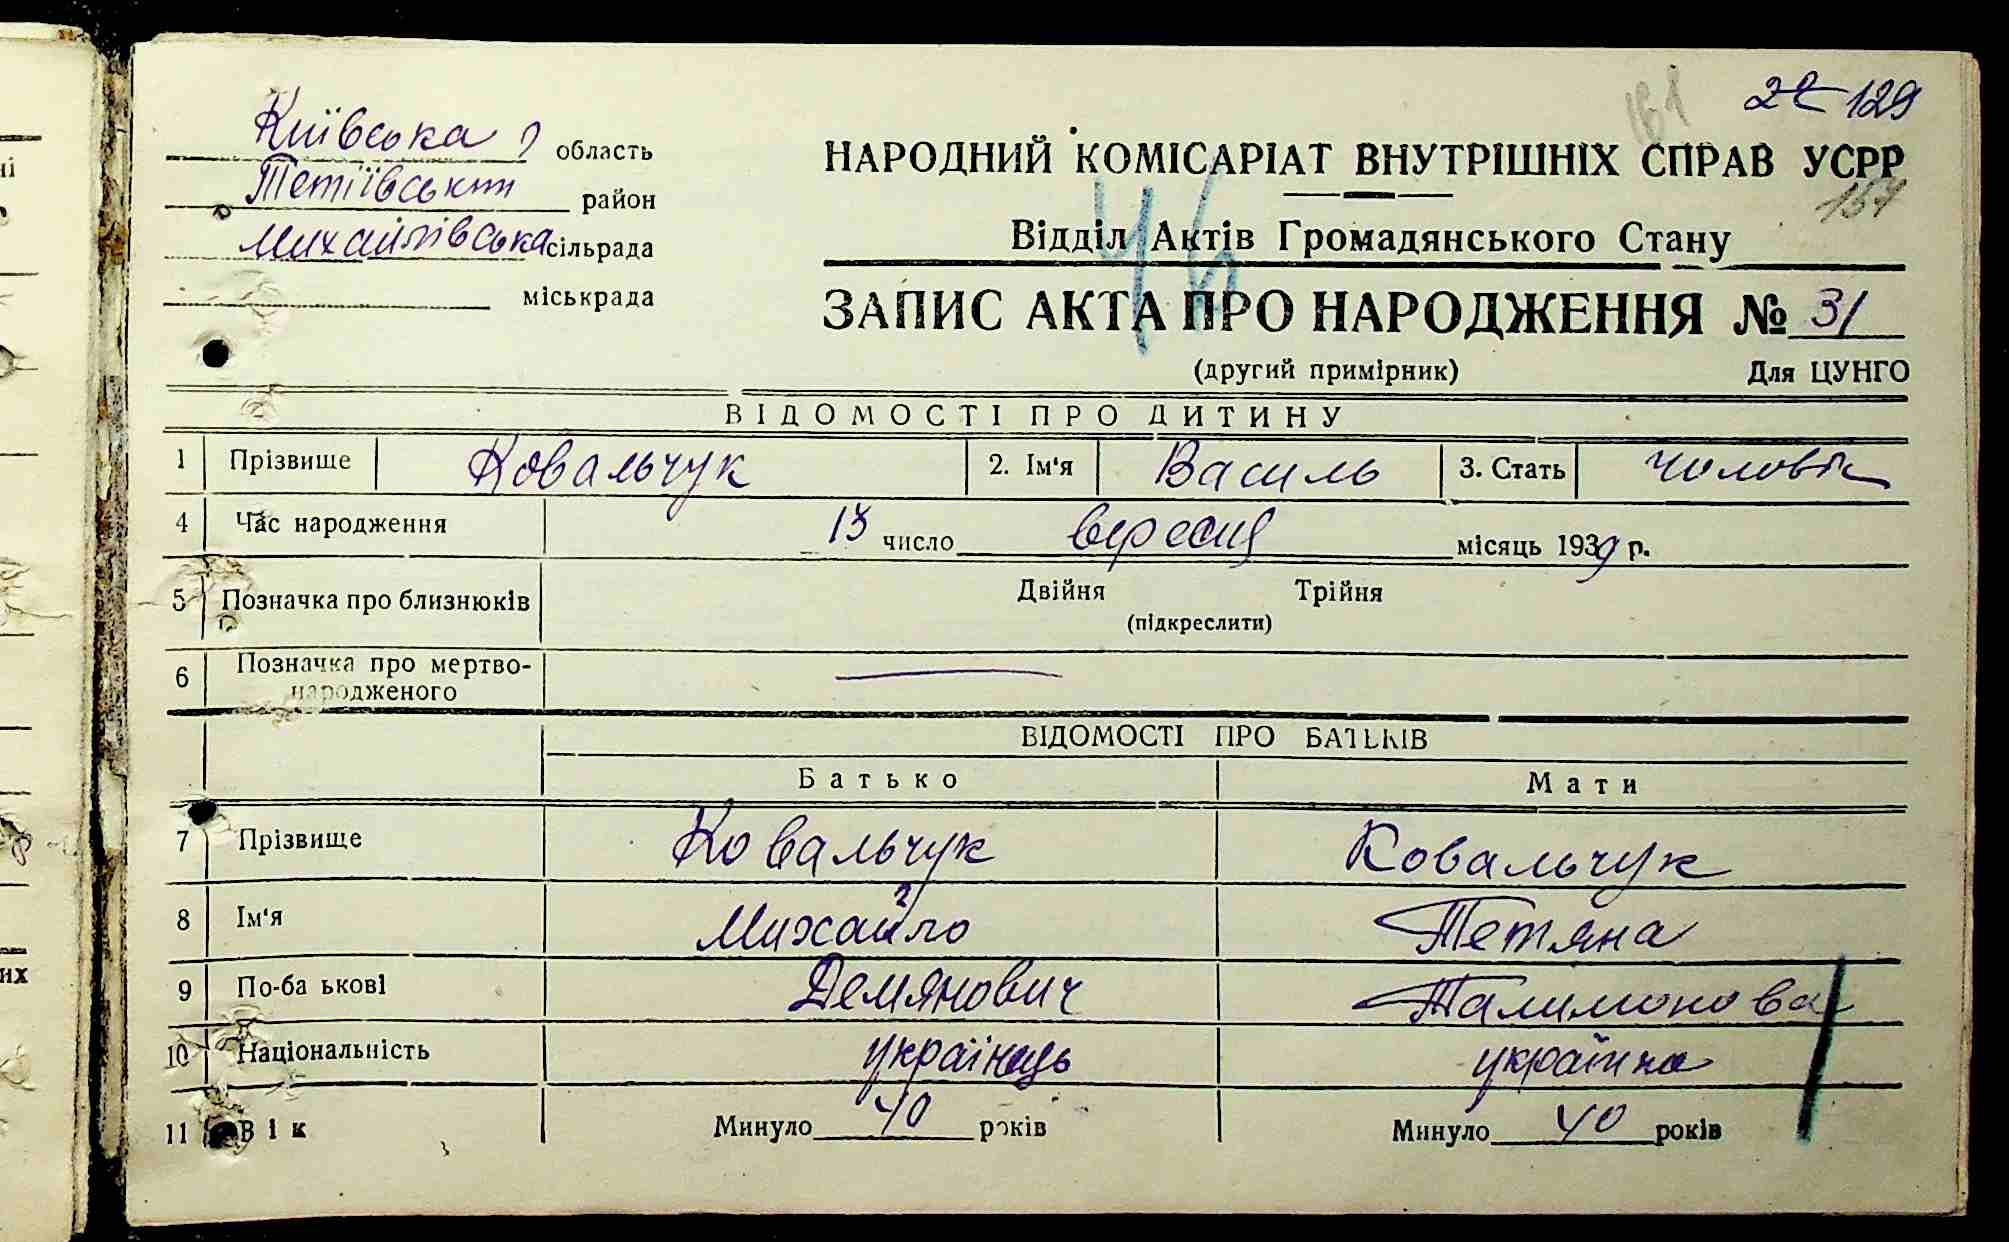 22 129
161
Київська область
НАРОДНИЙ КОМІСАРІАТ ВНУТРІШНІХ СПРАВ УСРР
Тетіївський район
157
Михайлівська сільрада
Відділ Актів Громадянського Стану
міськрада
46
ЗАПИС АКТА ПРО НАРОДЖЕННЯ № 31
(другий примірник) Для ЦУНГО
ВІДОМОСТІ ПРО ДИТИНУ
1 Прізвище Ковальчук 2. Ім'я Василь 3. Стать чоловік
4 Час народження 13 число вересня місяць 1939 р.
5 Позначка про близнюків Двійня Трійня
(підкреслити)
6 Позначка про мертво-
народженого
ВІДОМОСТІ ПРО БАТЬКІВ
Батько Мати
7 Прізвище Ковальчук Ковальчук
8 Ім'я Михайло Тетяна
9 По-ба ькові Демянович Талимонова
10 Національність українець українка
11 Вік Минуло 40 років Минуло 40 років